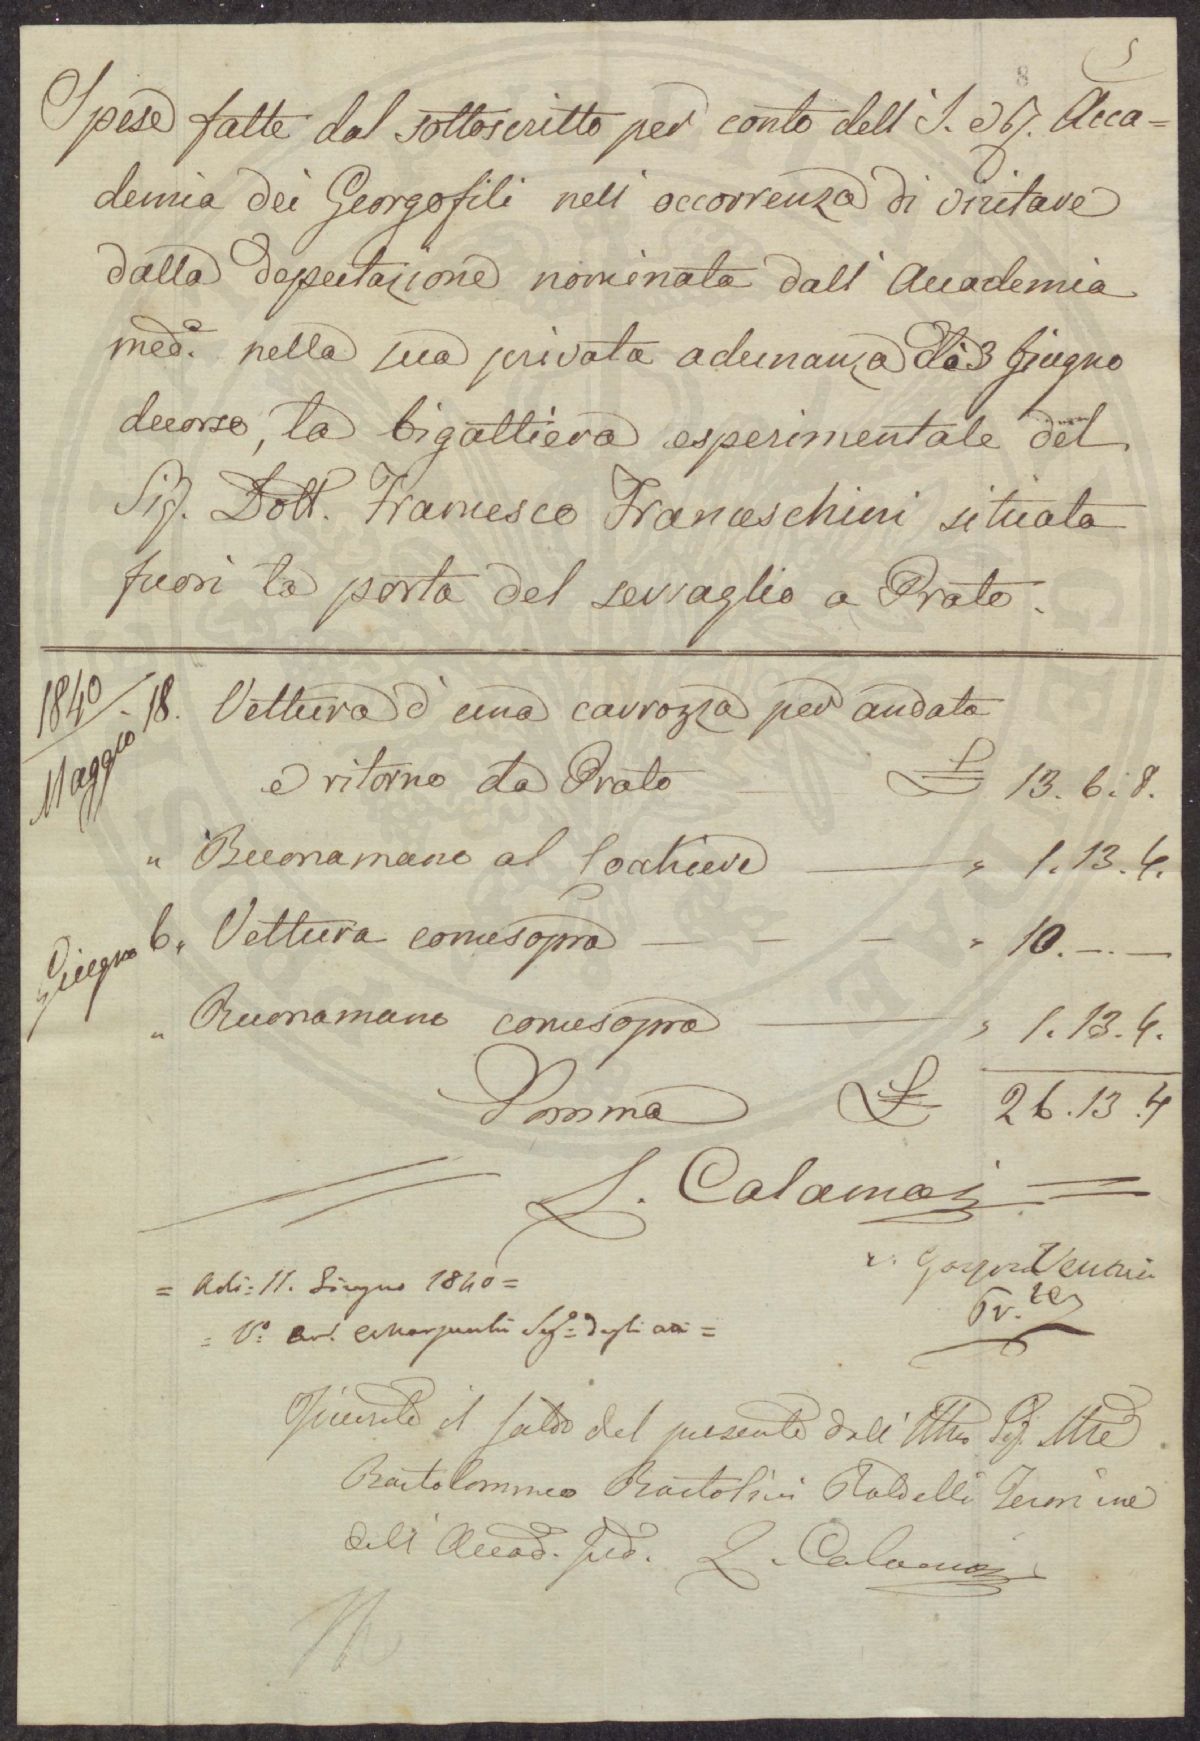 5
8
Spese fatte dal sottoscritto per conto dell' I. e R. Acca=
demia dei Georgofili nell' occorrenza di visitare
dalla deputazione nominata dall' Accademia
med.a nella sua privata adunanza dì 3 Giugno
decorso, la bigattiera esperimentale del
Sig. Dott. Francesco Franceschini situata
fuori la porta del serraglio a Prato.
1840
Maggio - 18. Vettura d' una carrozza per andata
e ritorno da Prato £ 13. 6. 8.
" Buonamano al Vetturale " 1. 13. 4.
Giugno 6. Vettura comesopra — — — " 10. — . —
" Buonamano comesopra " 1. 13. 4.
Somma £ 26. 13. 4
L. Calamai
= Adi: 11. Giugno 1840 =
V. Gaspero
= V.o Seg.o degli atti =
Ricevuto il saldo del presente dall' Illmo Sig. Mse
Bartolommeo Bartolini Baldelli
dell' Accad. sud.
L. Calamai